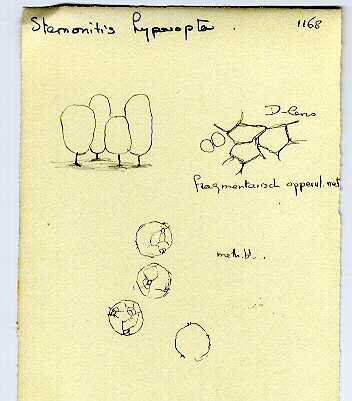 Stemonitis hyperopta. 1168
D-lens
fragmentarisch oppervl. net
meth. bl..